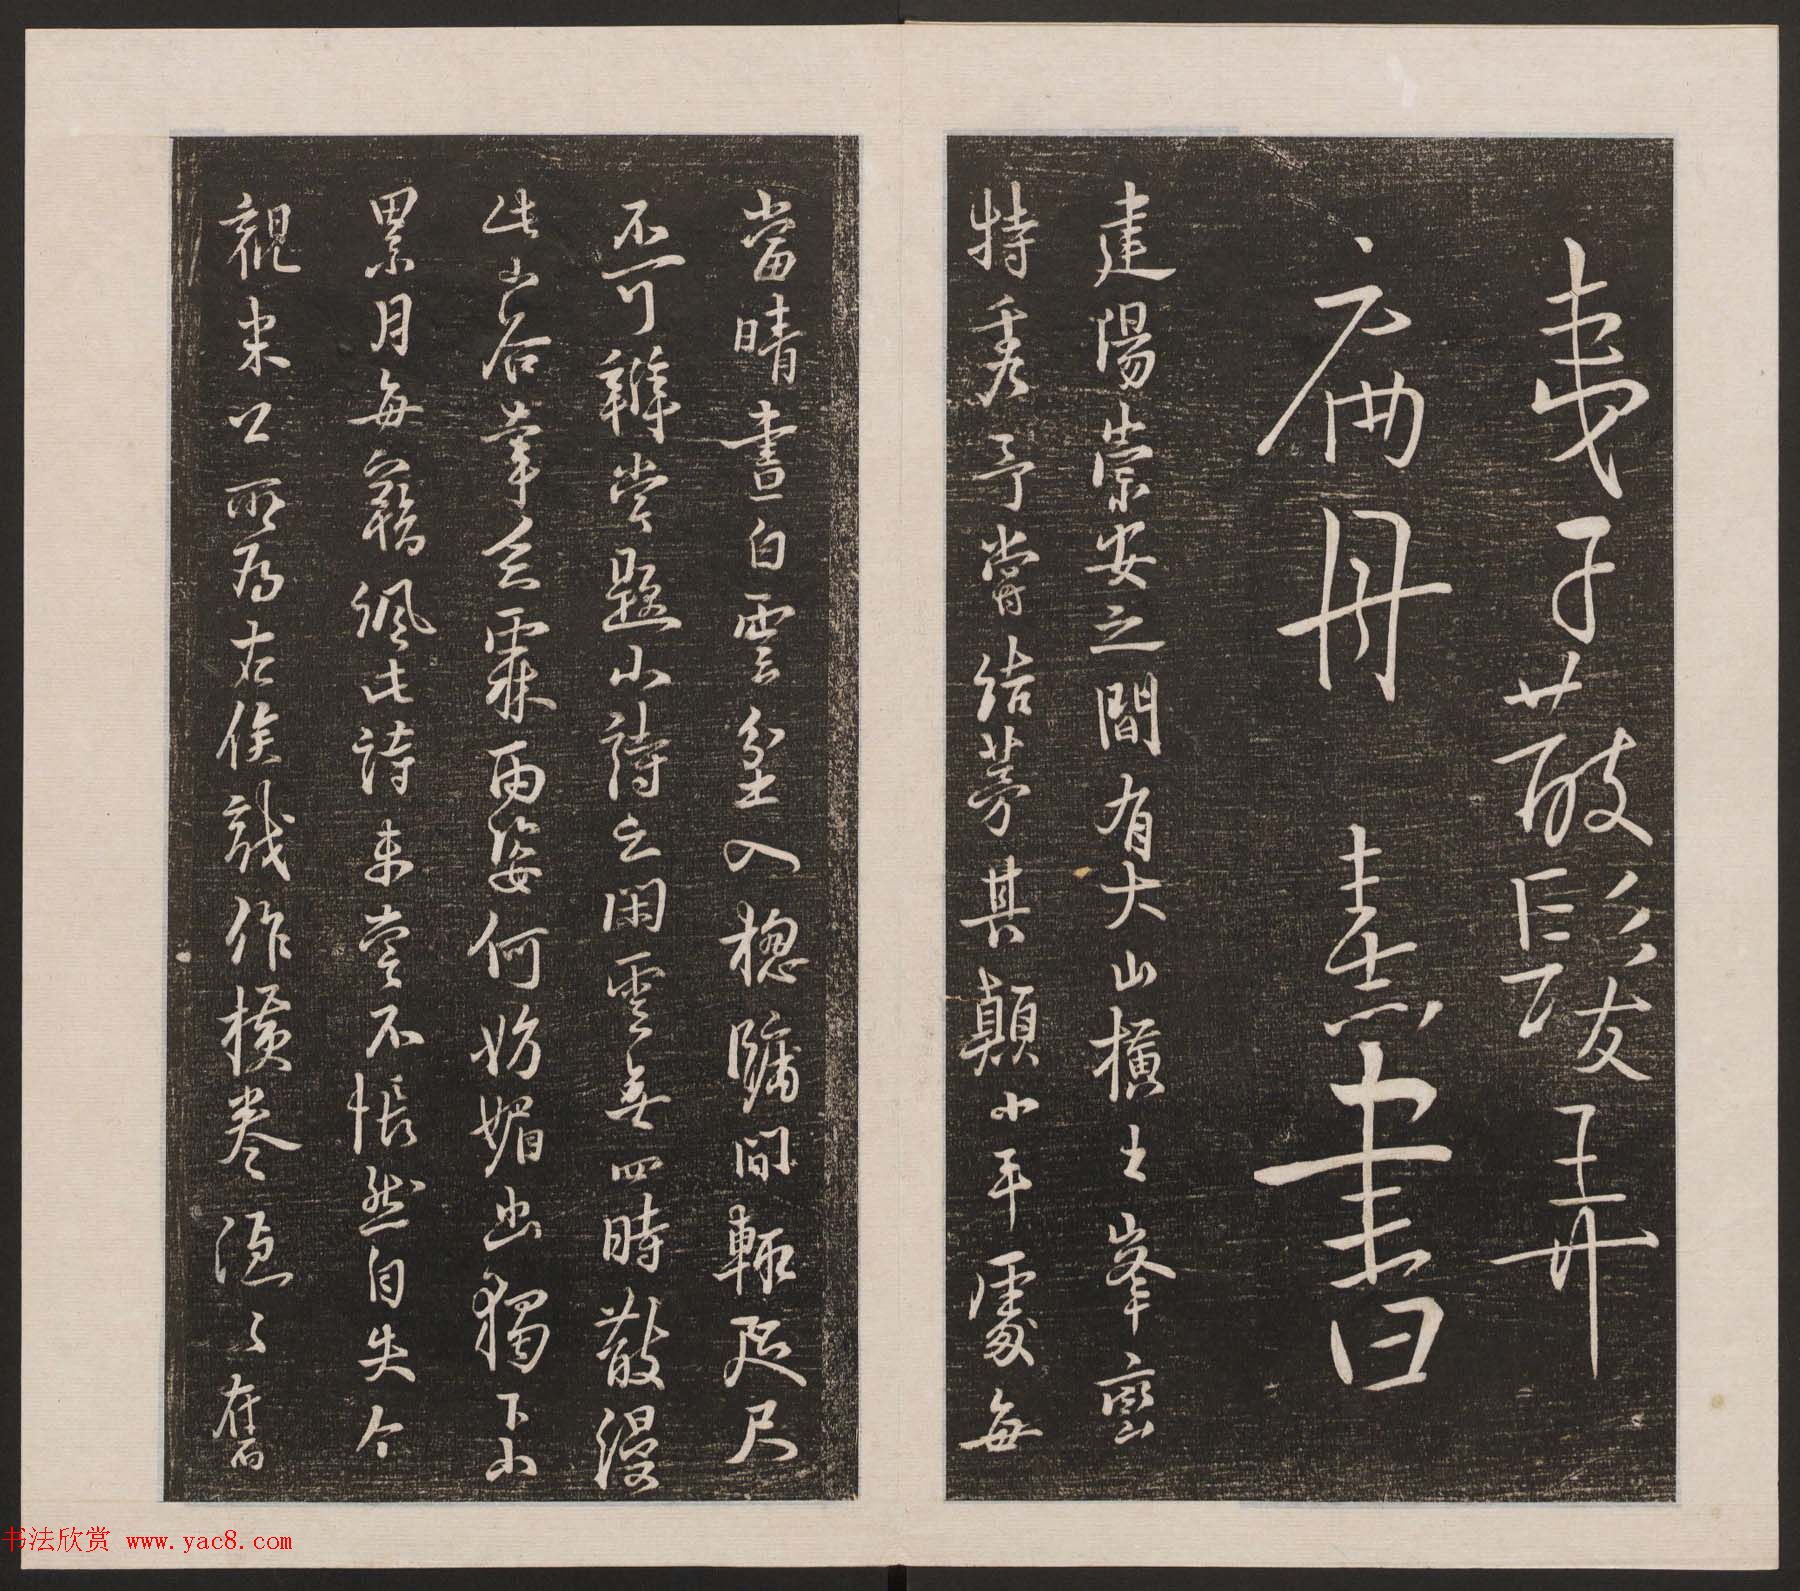 夷子散髮弄
扁舟 熹書
建陽崇安之間有大山橫出峯巒
特秀予嘗結茅其顛小平處每
當晴晝白雲坌入牕牖間輒咫尺
不可辨嘗題小詩云閑雲無四時散漫
此山谷幸乏霖雨姿何妨媚幽獨下山
累月每竊諷此詩未嘗不悵然自失今
觀米公所為左侯戲作橫卷隱隱舊
书法欣赏 www.yac8.com